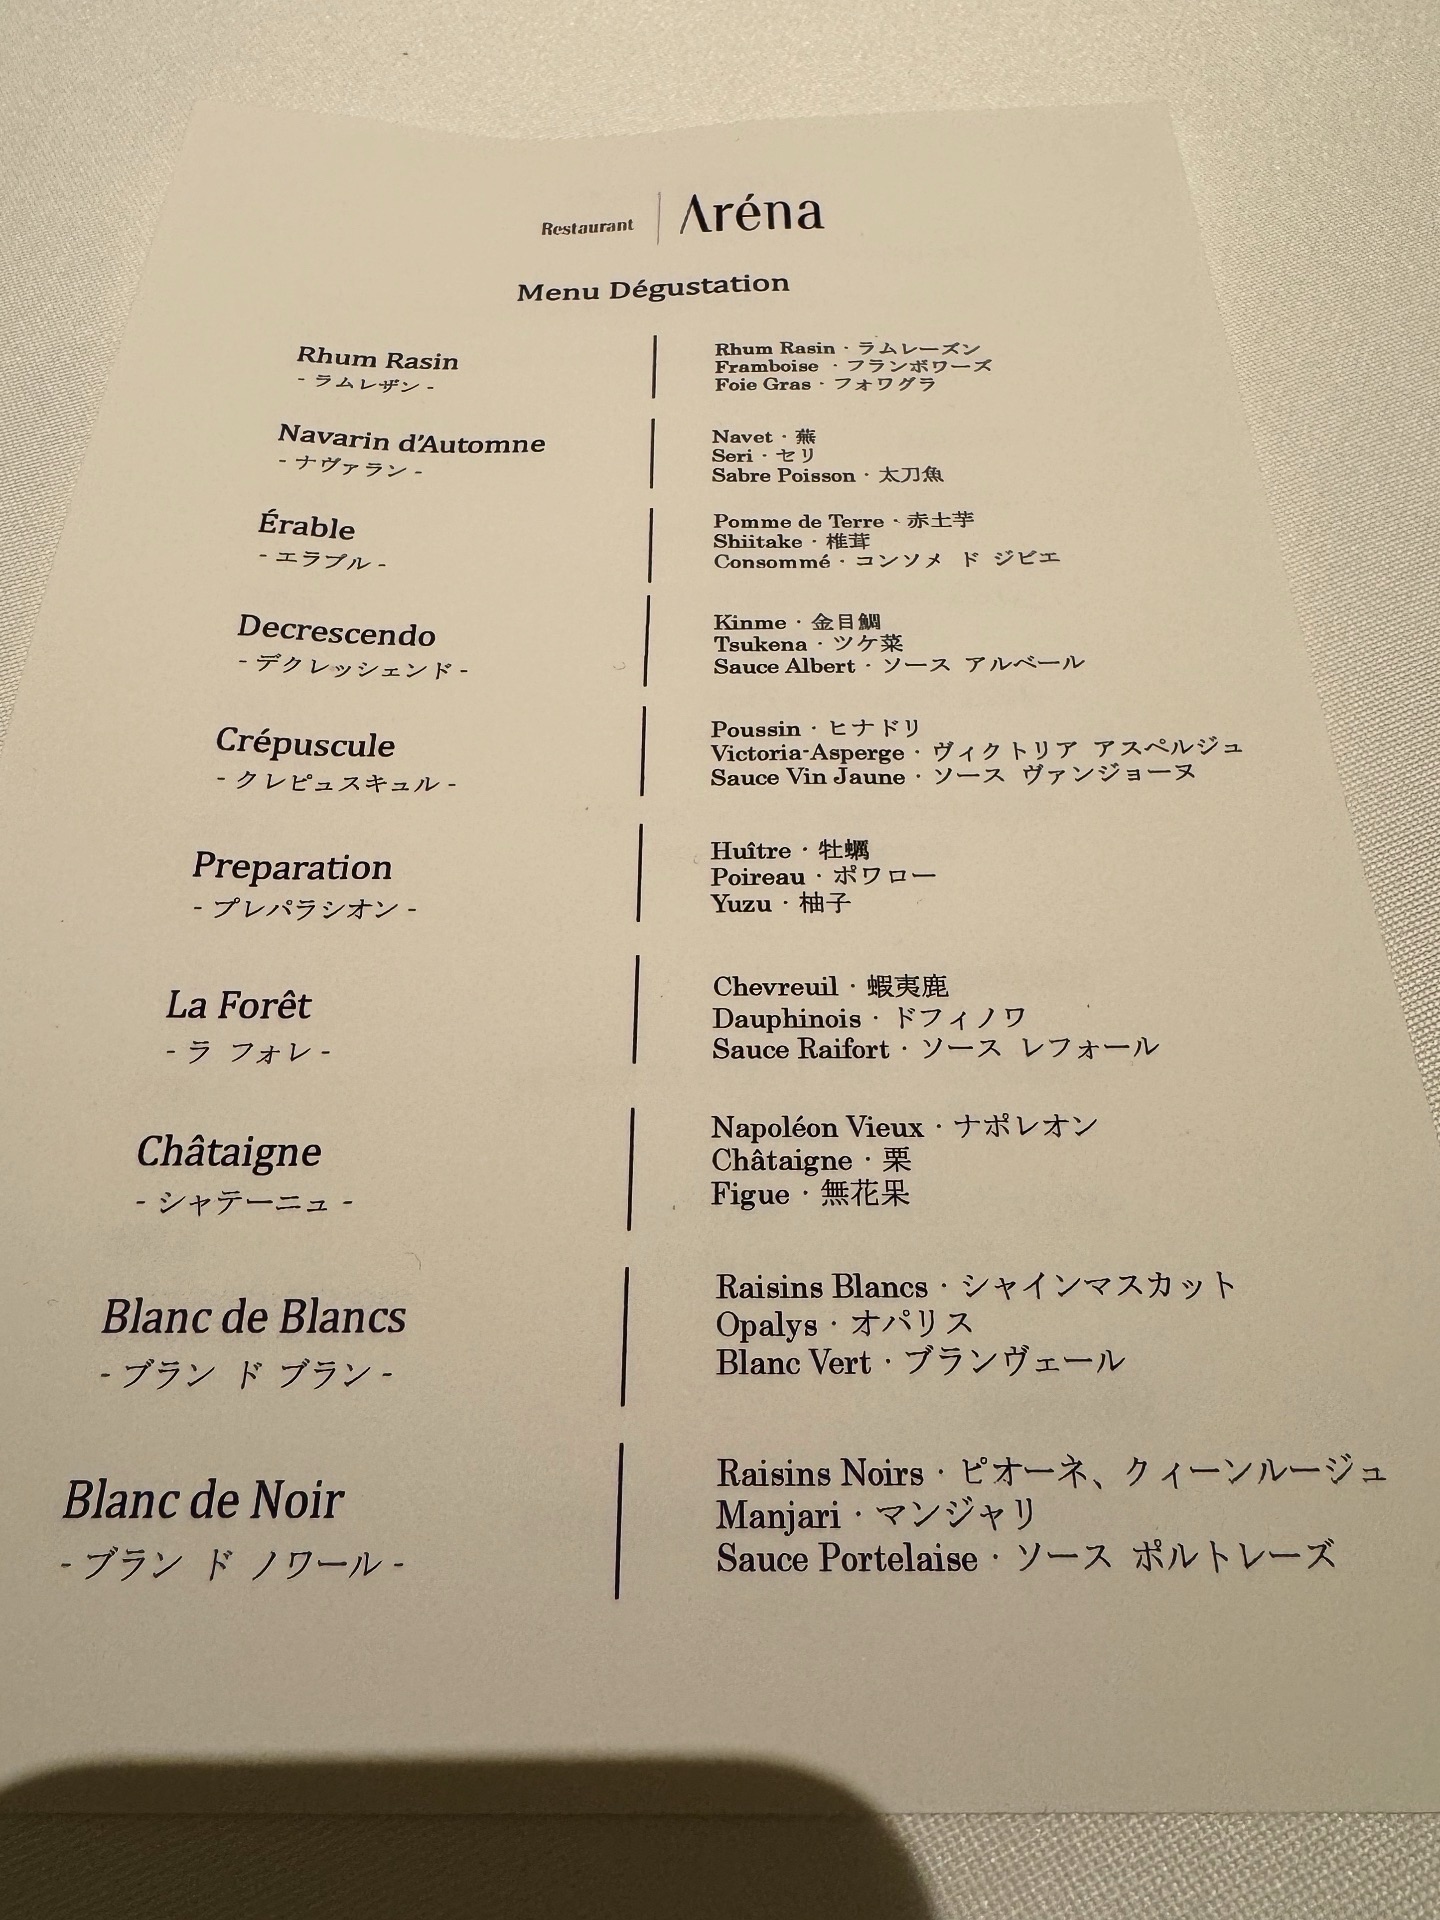 Restaurant | Aréna
Menu Dégustation
Rhum Rasin
- ラムレザン -
Rhum Rasin · ラムレーズン
Framboise · フランボワーズ
Foie Gras · フォワグラ
Navarin d'Automne
- ナヴァラン -
Navet · 蕪
Seri · セリ
Sabre Poisson · 太刀魚
Érable
- エラブル -
Pomme de Terre · 赤土芋
Shiitake · 椎茸
Consommé · コンソメ ド ジビエ
Decrescendo
- デクレッシェンド -
Kinme · 金目鯛
Tsukena · ツケ菜
Sauce Albert · ソース アルベール
Crépuscule
- クレピュスキュル -
Poussin · ヒナドリ
Victoria-Asperge · ヴィクトリア アスペルジュ
Sauce Vin Jaune · ソース ヴァンジョーヌ
Preparation
- プレパラシオン -
Huître · 牡蠣
Poireau · ポワロー
Yuzu · 柚子
La Forêt
- ラ フォレ -
Chevreuil · 蝦夷鹿
Dauphinois · ドフィノワ
Sauce Raifort · ソース レフォール
Châtaigne
- シャテーニュ -
Napoléon Vieux · ナポレオン
Châtaigne · 栗
Figue · 無花果
Blanc de Blancs
- ブラン ド ブラン -
Raisins Blancs · シャインマスカット
Opalys · オパリス
Blanc Vert · ブランヴェール
Blanc de Noir
- ブラン ド ノワール -
Raisins Noirs · ピオーネ、クィーンルージュ
Manjari · マンジャリ
Sauce Portelaise · ソース ポルトレーズ